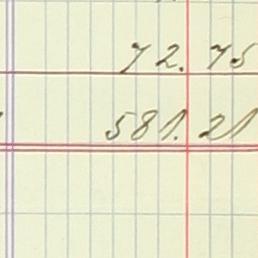 72.75
581.21